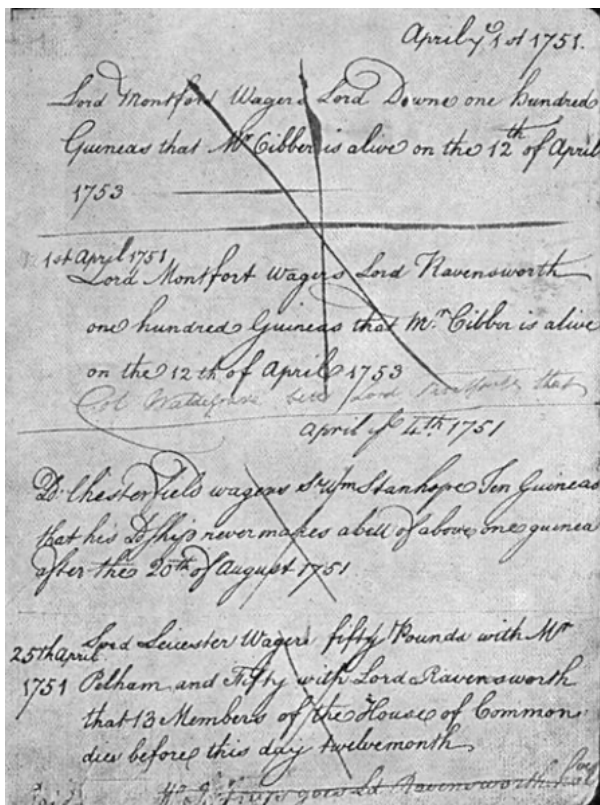 April ye 1st 1751.
Lord Montford Wagers Lord Downe one hundred
Guineas that Mr. Cibber is alive on the 12th of April
1753
1st April 1751
Lord Montfort Wagers Lord Ravensworth
one hundred Guineas that Mr. Cibber is alive
on the 12th of April 1753
Col Waldegrave bets Lord that
April ye 4th 1751
Ld. Chesterfield wagers Sr Wm Stanhope Ten Guineas
that his Ldship never makes a bett of above one guinea
after the 20th of August 1751
25th April
1751
Lord Leicester Wagers fifty Pounds with Mr
Pelham and Fifty with Lord Ravensworth
that 13 Members of the House of Commons
dies before this day twelvemonth
goes Ld Ravensworth